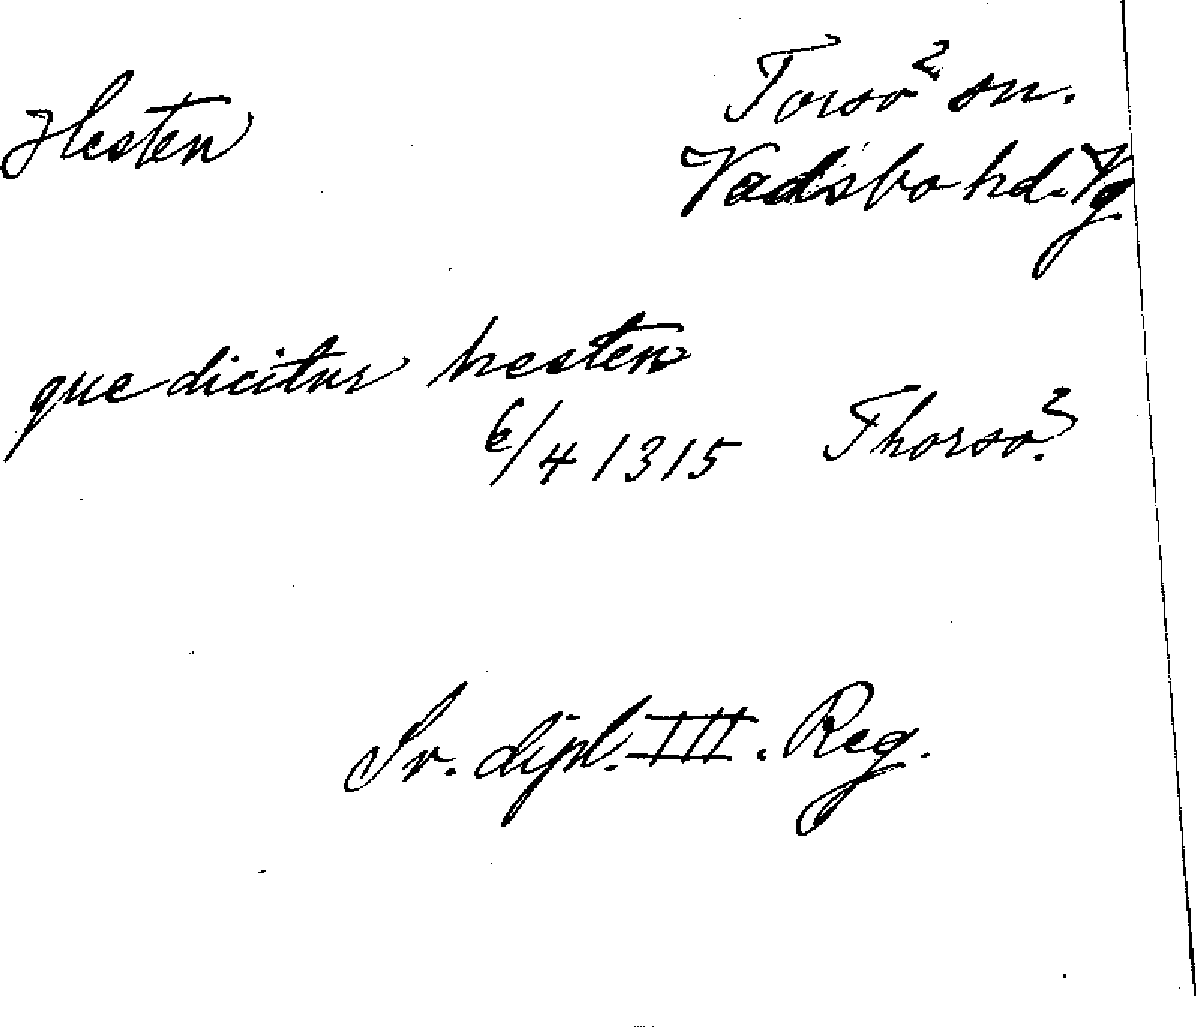 Hesten
Torsö? sn.
Vadsbo hd. Vg
que dicitur hesten
6/4 1315 Thorso?
Sv. dipl. III. Reg.